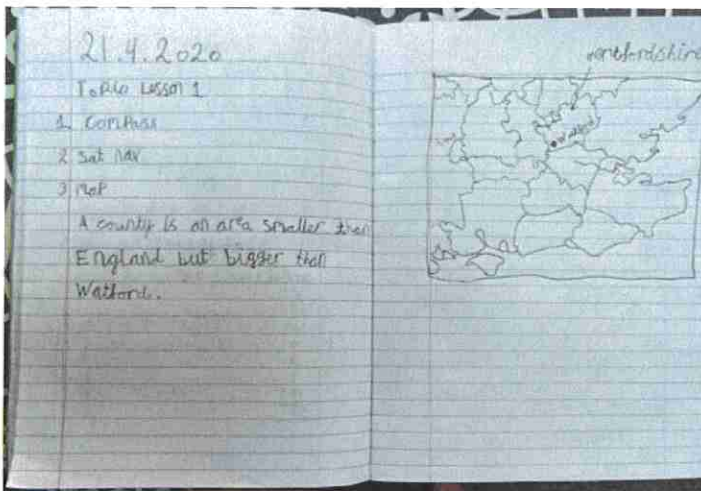 21.4.2020
Topic Lesson 1
1. Compass
2 Sat nav
3 Map
A county is an area smaller than
England but bigger than
Watford.
Hertfordshire
Watford